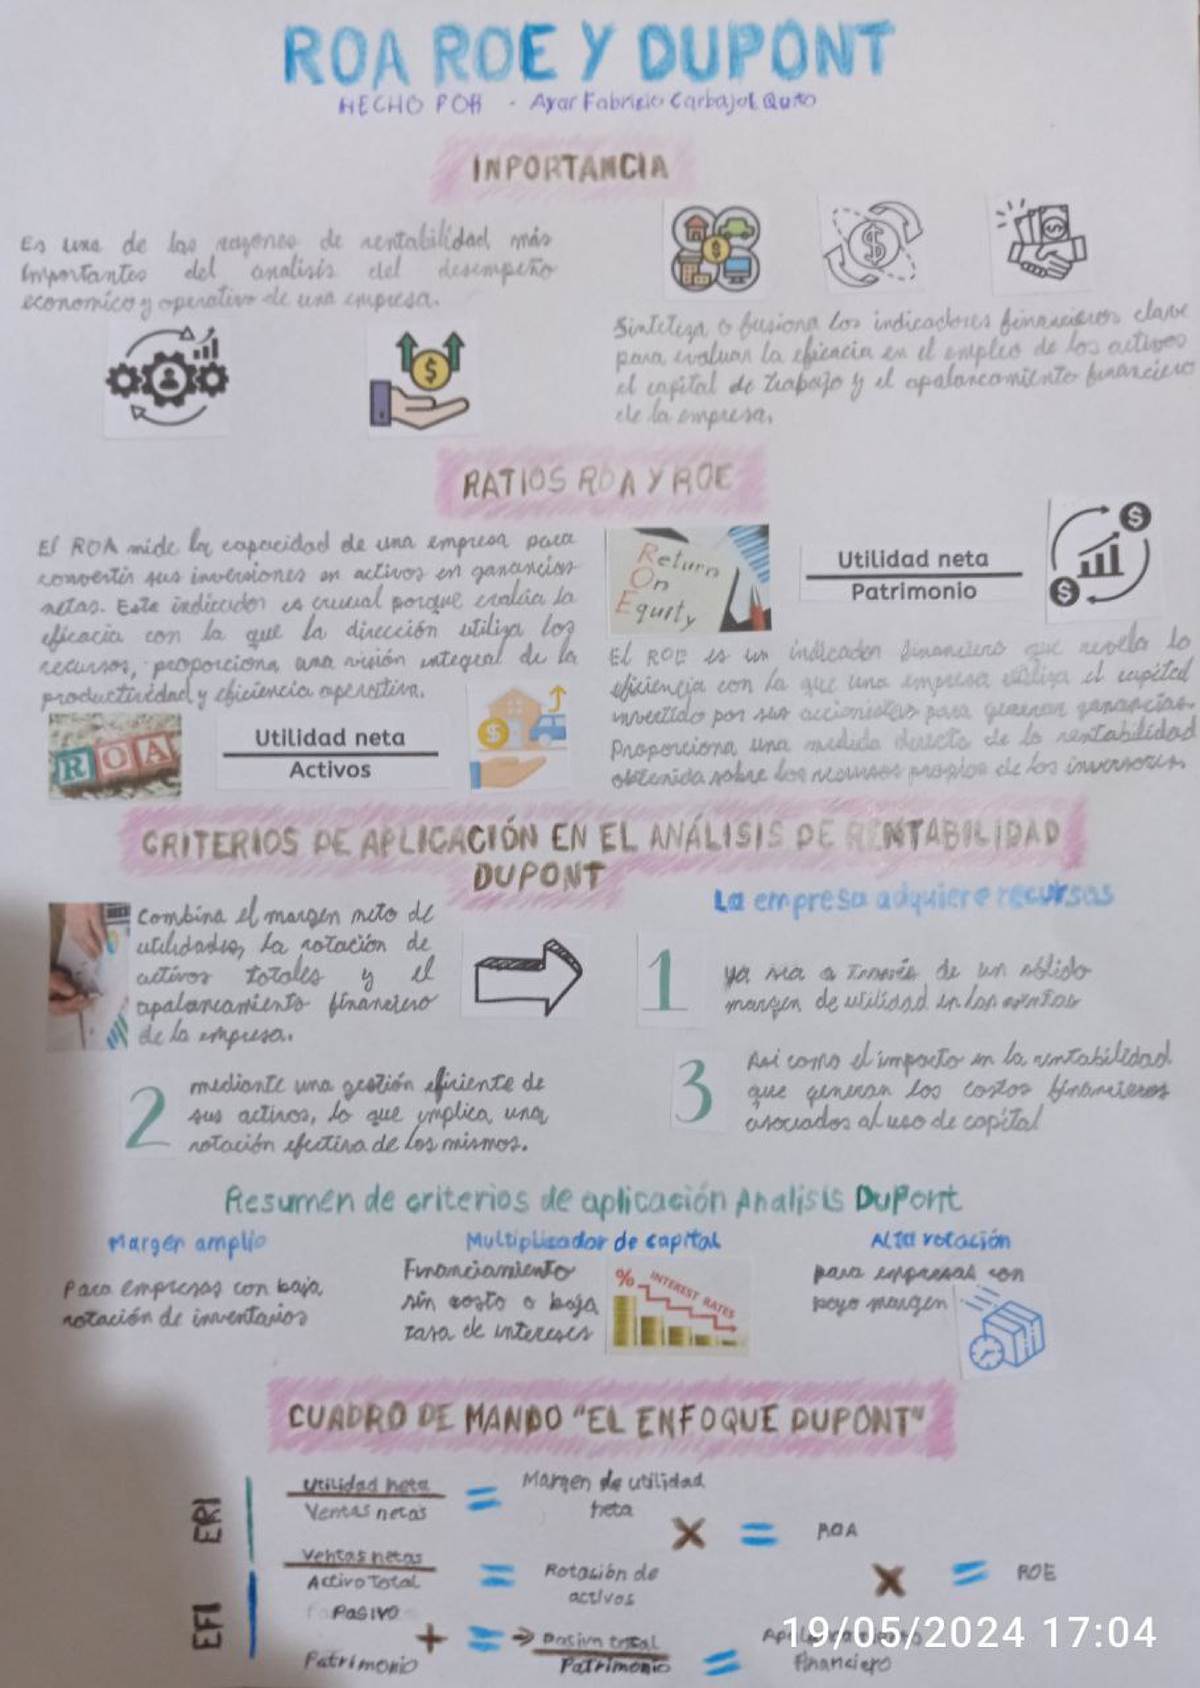 ROA ROE Y DUPONT
HECHO POR - Ayar Fabrizio Carbajol Quito
INPORTANCIA
Es una de las razones de rentabilidad más
importantes del analisis del desempeño
economico y operativo de una empresa.
Sintetiza o fusiona los indicadores financieros clave
para evaluar la eficacia en el empleo de los activos
el capital de trabajo y el apalancamiento financiero
de la empresa.
RATIOS ROA Y ROE
El ROA mide la capacidad de una empresa para
convertir sus inversiones en activos en ganancias
netas. Este indicador es crucial porque evalúa la
eficacia con la que la dirección utiliza los
recursos, proporciona una visión integral de la
productividad y eficiencia operativa.
ROA
Utilidad neta
Activos
Return
On
Equity
Utilidad neta
Patrimonio
El ROE es un indicador financiero que revela la
eficiencia con la que una empresa utiliza el capital
invertido por sus accionistas para generar ganancias.
Proporciona una medida directa de la rentabilidad
obtenida sobre los recursos propios de los inversores.
CRITERIOS DE APLICACIÓN EN EL ANÁLISIS DE RENTABILIDAD
DUPONT
Combina el margen neto de
utilidades, la rotación de
activos totales y el
apalancamiento financiero
de la empresa.
La empresa adquiere recursos
1
ya sea a través de un sólido
margen de utilidad en las ventas
2
mediante una gestión eficiente de
sus activos, lo que implica una
rotación efectiva de los mismos.
3
Asi como el impacto en la rentabilidad
que generan los costos financieros
asociados al uso de capital
Resumen de criterios de aplicación Analisis DuPont
Margen amplio
Para empresas con baja
rotación de inventarios
Multiplicador de capital
Financiamiento
sin costo o baja
tasa de intereses
% INTEREST RATES
Alta rotación
para empresas con
bajo margen
CUADRO DE MANDO "EL ENFOQUE DUPONT"
ERI
Utilidad neta
Ventas netas
= Margen de utilidad
neta
X = ROA
Ventas netas
Activo Total
= Rotación de
activos
X = ROE
EFI
Pasivo
+
Patrimonio
= → Pasivo total
Patrimonio
=
Financiero
19/05/2024 17:04